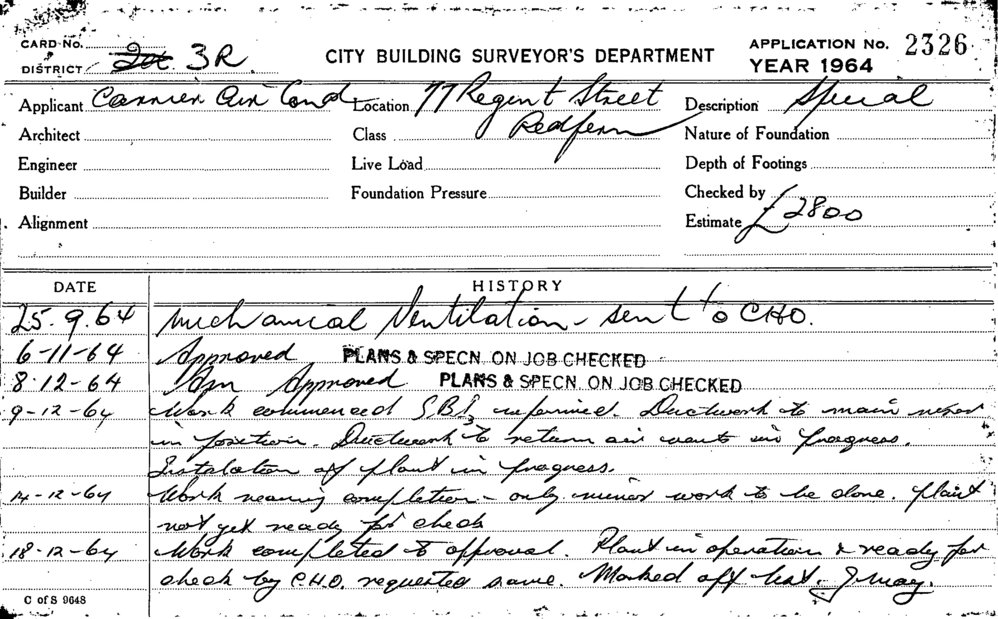 CARD No.
DISTRICT 3R.
CITY BUILDING SURVEYOR'S DEPARTMENT
APPLICATION No. 2326
YEAR 1964
Applicant Carrier Air Cond Location 77 Regent Street Description Special
Redfern
Architect Class Nature of Foundation
Engineer Live Load Depth of Footings
Builder Foundation Pressure Checked by
Alignment Estimate £2800
DATE HISTORY
25.9.64 Mechanical Ventilation - sent to CHO.
6-11-64 Approved PLANS & SPECN. ON JOB CHECKED
8-12-64 Approved PLANS & SPECN. ON JOB CHECKED
9-12-64 Work commenced informed. Ductwork to main
in position. Ductwork to return air vents in progress.
Installation of plant in progress.
14-12-64 Work nearing completion - only minor work to be done. plant
not yet ready for check
18-12-64 Work completed to approval. Plant in operation & ready for
check by C.H.O. requested same. Marked off list. J May.
C of S 9648